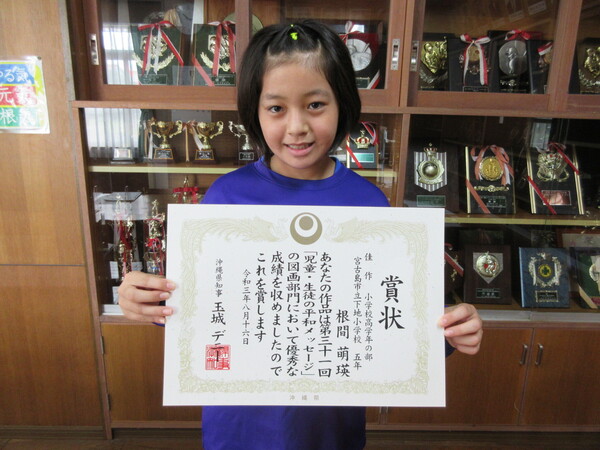 賞状
佳作 小学校高学年の部
宮古島市立下地小学校 五年
根間 萌瑛
あなたの作品は第三十一回
「児童・生徒の平和メッセージ」
の図画部門において優秀な
成績を収めましたので
これを賞します
令和三年八月十六日
沖縄県知事 玉城 デニー
沖縄県